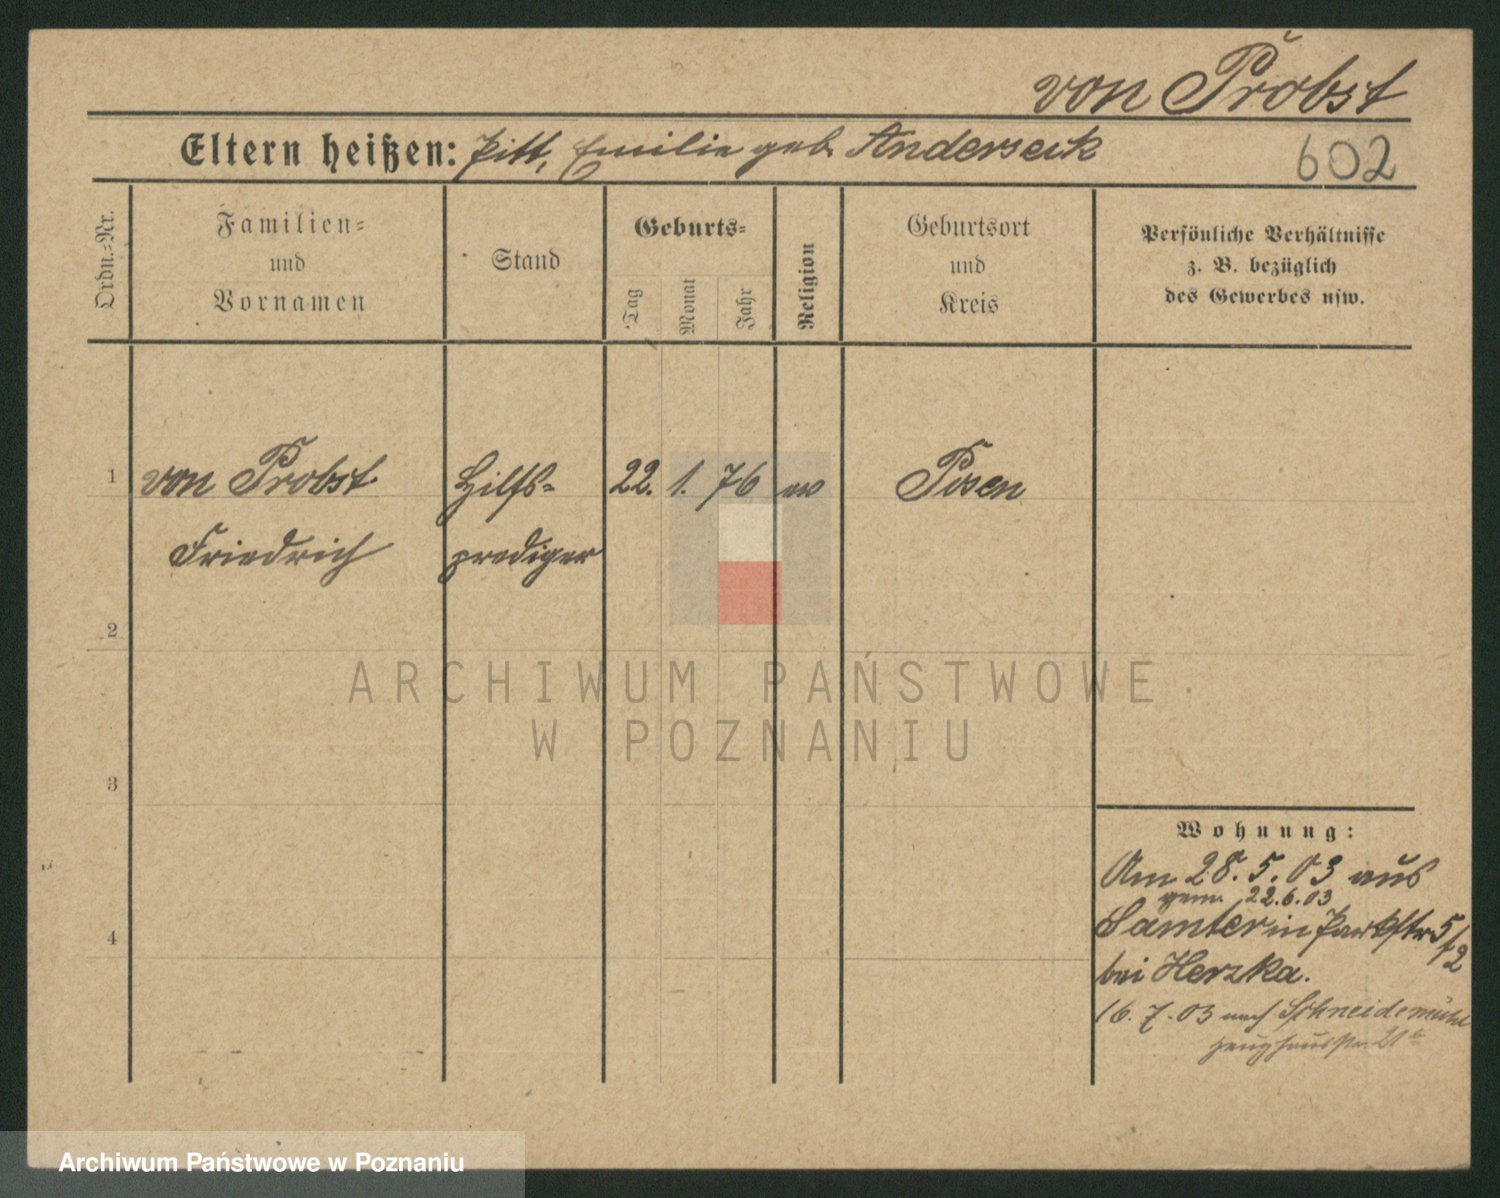 von Probst
Eltern heißen: Pitt, Emilie geb. Anderseck
602
Ordn.-Nr.
Familien-
und
Vornamen
Stand
Geburts-
Tag
Monat
Jahr
Religion
Geburtsort
und
Kreis
Persönliche Verhältnisse
z. B. bezüglich
des Gewerbes usw.
1 von Probst Hilfs- 22. 1. 76 ev Posen
Friedrich prediger
2
3
4
Wohnung:
Am 28. 5. 03 aus
gem. 22.6.03
Samter in Parkstr 5/2
bei Herzka.
16. 7. 03 nach Schneidemühl
Zeughausstr. 21
ARCHIWUM PAŃSTWOWE
W POZNANIU
Archiwum Państwowe w Poznaniu